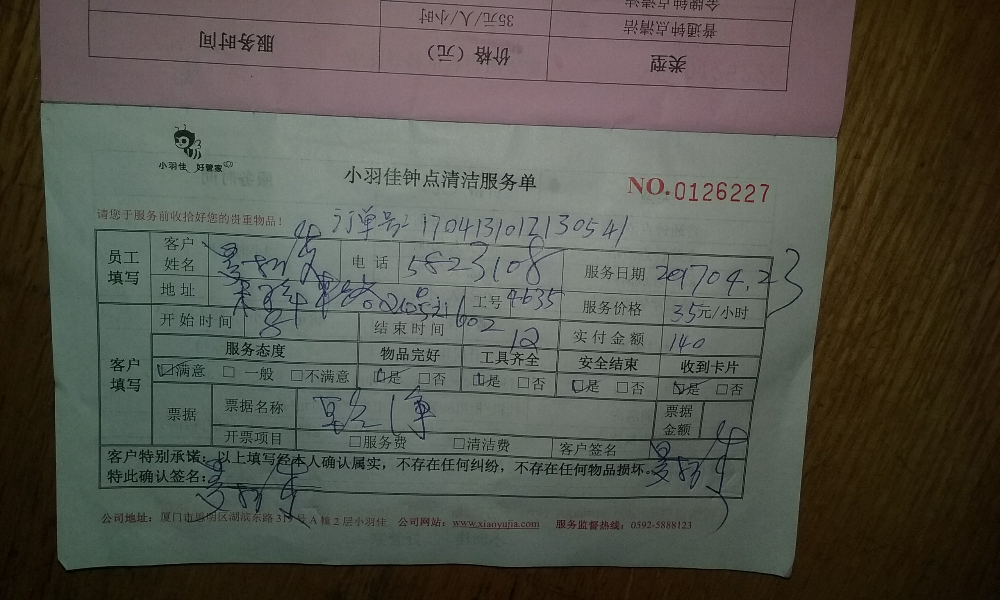 普通钟点清洁 35元/人/小时
类型 价格（元） 服务时间
小羽佳 好管家
小羽佳钟点清洁服务单
NO.0126227
请您于服务前收拾好您的贵重物品！ 订单号: 1704131012130541
员工填写 客户姓名 电话 5823108 服务日期 2017.04.23
地址 工号 4635 服务价格 35元/小时
客户填写 开始时间 8 结束时间 12 实付金额 140
服务态度 物品完好 工具齐全 安全结束 收到卡片
☑满意 □一般 □不满意 ☑是 □否 ☑是 □否 ☑是 □否 ☑是 □否
票据 票据名称 票据金额
开票项目 □服务费 □清洁费 客户签名
客户特别承诺：以上填写经本人确认属实，不存在任何纠纷，不存在任何物品损坏。
特此确认签名：
公司地址：厦门市思明区湖滨东路319号A幢2层小羽佳 公司网站：www.xiaoyujia.com 服务监督热线：0592-5888123